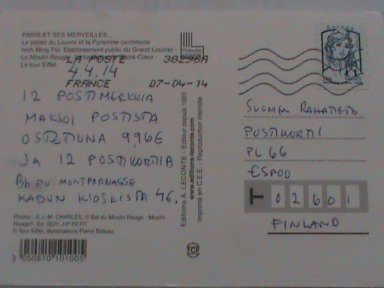 PARIS ET SES MERVEILLES
Le palais du Louvre et la Pyramide (architecte
Ieoh Ming Pei, Etablissement public du Grand Louvre) -
Le Moulin Rouge
La tour Eiffel
LA POSTE 38298A
4.4.14
FRANCE 07-04-14
12 POSTIMERKKIÄ
MAKSOI POSTISTA
OSTETTUNA 9,96€
JA 12 POSTIKORTTIA
MONTPARNASSE
KADUN KIOSKISTA 4€.
Photos : © J.-M. CHARLES, © Bal du Moulin Rouge - Moulin
Rouge®, Ed. GUY, J-P PETIT
© Tour Eiffel, illuminations Pierre Bideau
3 050810 101005
Editions A. LECONTE - Editeur depuis 1920
www.editions-leconte.com
Imprimé en C.E.E. - Reproduction interdite
SUOMEN RAHATIETO
POSTIKORTTI
PL 66
ESPOO
02601
FINLAND